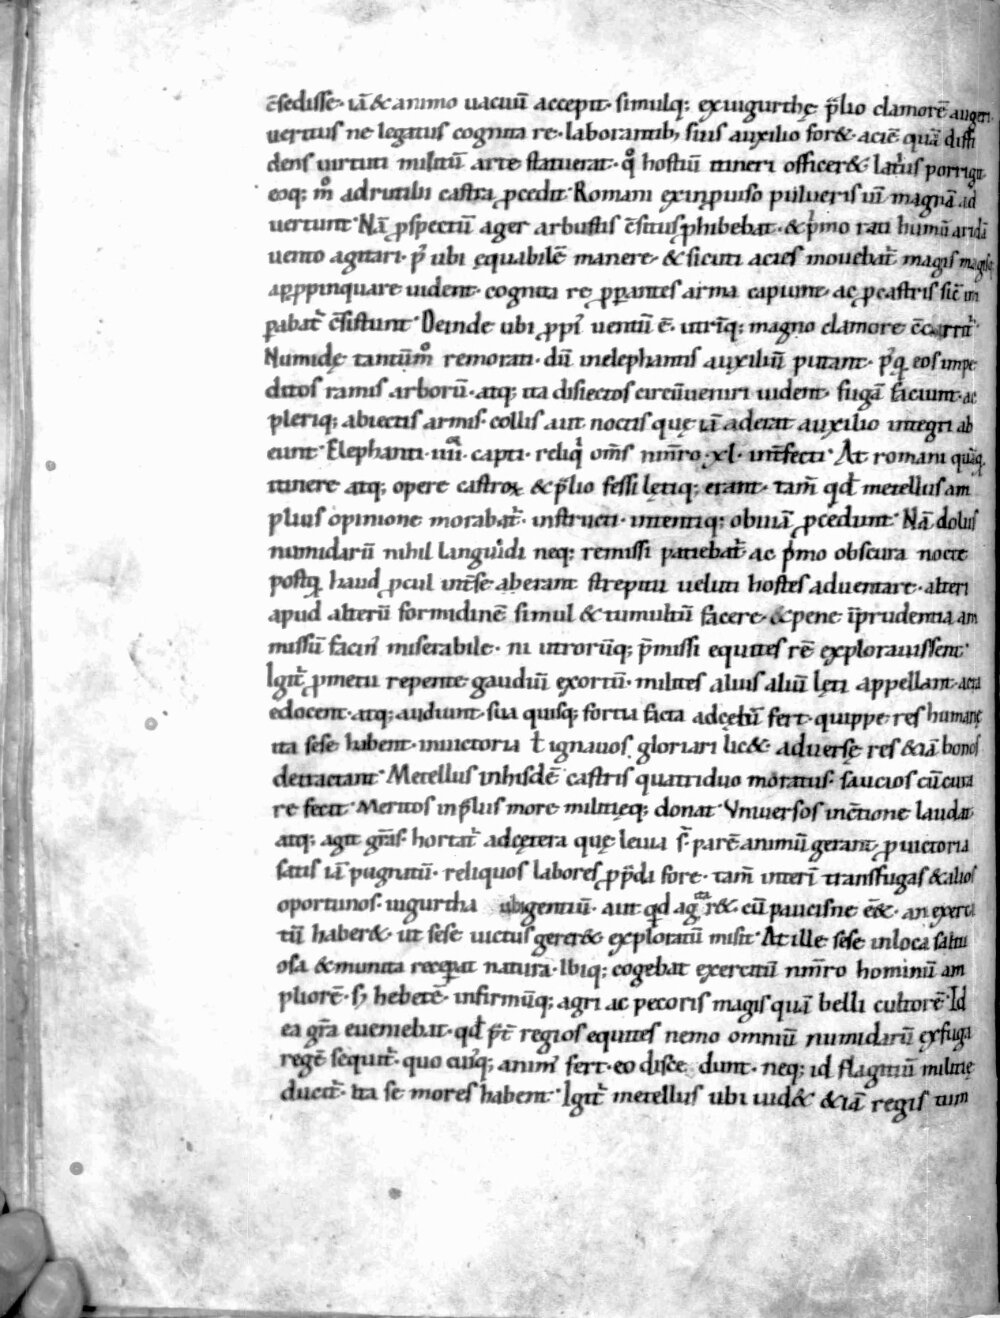 c̄sedisse· iā & animo uacuū accepit· simulq; ex iugurthę p̄lio clamorē augeri
ueritus ne legatus cognita re· laborantib; suis auxilio for&· aciē quā diffi
dens uirtuti militū arte statuerat· qͦ hostiū itineri officer& latiͥus porrigit
eoq; mͦ ad rutilii castra ꝓcedit· Romani ex inꝓuiso pulueris uī magnā ad
uertunt· Nā ꝓspectū ager arbustis c̄situs ꝓhibebat· & pͥmo rati humū aridā
uento agitari· p᷒ ubi ęquabilē manere· & sicuti acies mouebat᷑ magis magisq;
apꝓpinquare uident· cognita re ꝓꝑantes arma capiunt· ac ꝓ castris sic̄ im
ꝑabat᷑ c̄sistunt· Deinde ubi ꝓpi᷒ uentū ē· utrīq; magno clamore c̄currit᷑
Numidę tantūmͦ remorati· dū in elephantis auxiliū putant· p᷒q̄ eos impe
ditos ramis arborū· atq; ita disiectos circūueniri uident· fugā faciunt· ac
pleriq; abiectis armis· collis aut noctis quę iā aderat auxilio integri ab
eunt· Elephanti· iiii· capti· reliqͥ om̄s nūro· xl· int̄fecti· At romani quāq̄
itinere atq; opere castroꝝ & p̄lio fessi lętiq; erant· tam̄ qđ metellus am
plius opinione morabat᷑· instructi· intentiq; obuiā ꝓcedunt· Nā dolus
numidarū nihil languidi neq; remissi patiebat᷑ ac pͥmo obscura nocte
postq̄ haud ꝓcul int̄ se aberant strepitu uelut hostes aduentare· alteri
apud alterū formidinē simul & tumultū facere· & pene īprudentia am
missū facin᷒ miserabile· ni utrorūq; p̄missi equites rē explorauissent·
Igit᷑ ꝓ metu repente gaudiū exortū· milites alius aliū lęti appellant· acta
edocent· atq; audiunt· sua quisq; fortia facta ad cęlū fert· quippe res humanę
ita sese habent· in uictoria ł ignauos gloriari lic&· aduersę res &iā bonos
detractant· Metellus in hisdē castris quatriduo moratus· saucios cū cura
re fecit· Meritos in p̄lius more militięq; donat· Vniuersos in c̄tione laudat
atq; agit gr̄as· hortat᷑ ad cętera quę leuia s᷑ parē animū gerant· ꝓ uictoria
satis iā pugnatū· reliquos labores ꝓ p̄da fore· tam̄ interī transfugas & alios
oportunos· iugurtha ubi gentiū· aut qđ agitar&· cū paucisne ēē· an exerci
tū haber& ut sese uictus gerer& exploratū misit· At ille sese in loca saltu
osa & munita receꝑat natura· Ibiq; cogebat exercitū nūro hominū am
pliorē· sꝫ hebetē· infirmūq; agri ac pecoris magis quā belli cultorē· Id
ea gr̄a eueniebat· qđ p̄t᷑ regios equites nemo omniū numidarū ex fuga
regē sequit᷑· quo cui᷒q; anim᷒ fert· eo disce dunt· neq; id flagitiū militię
ducit᷑· Ita se mores habent· Igit᷑ metellus ubi uid& &iā regis tum